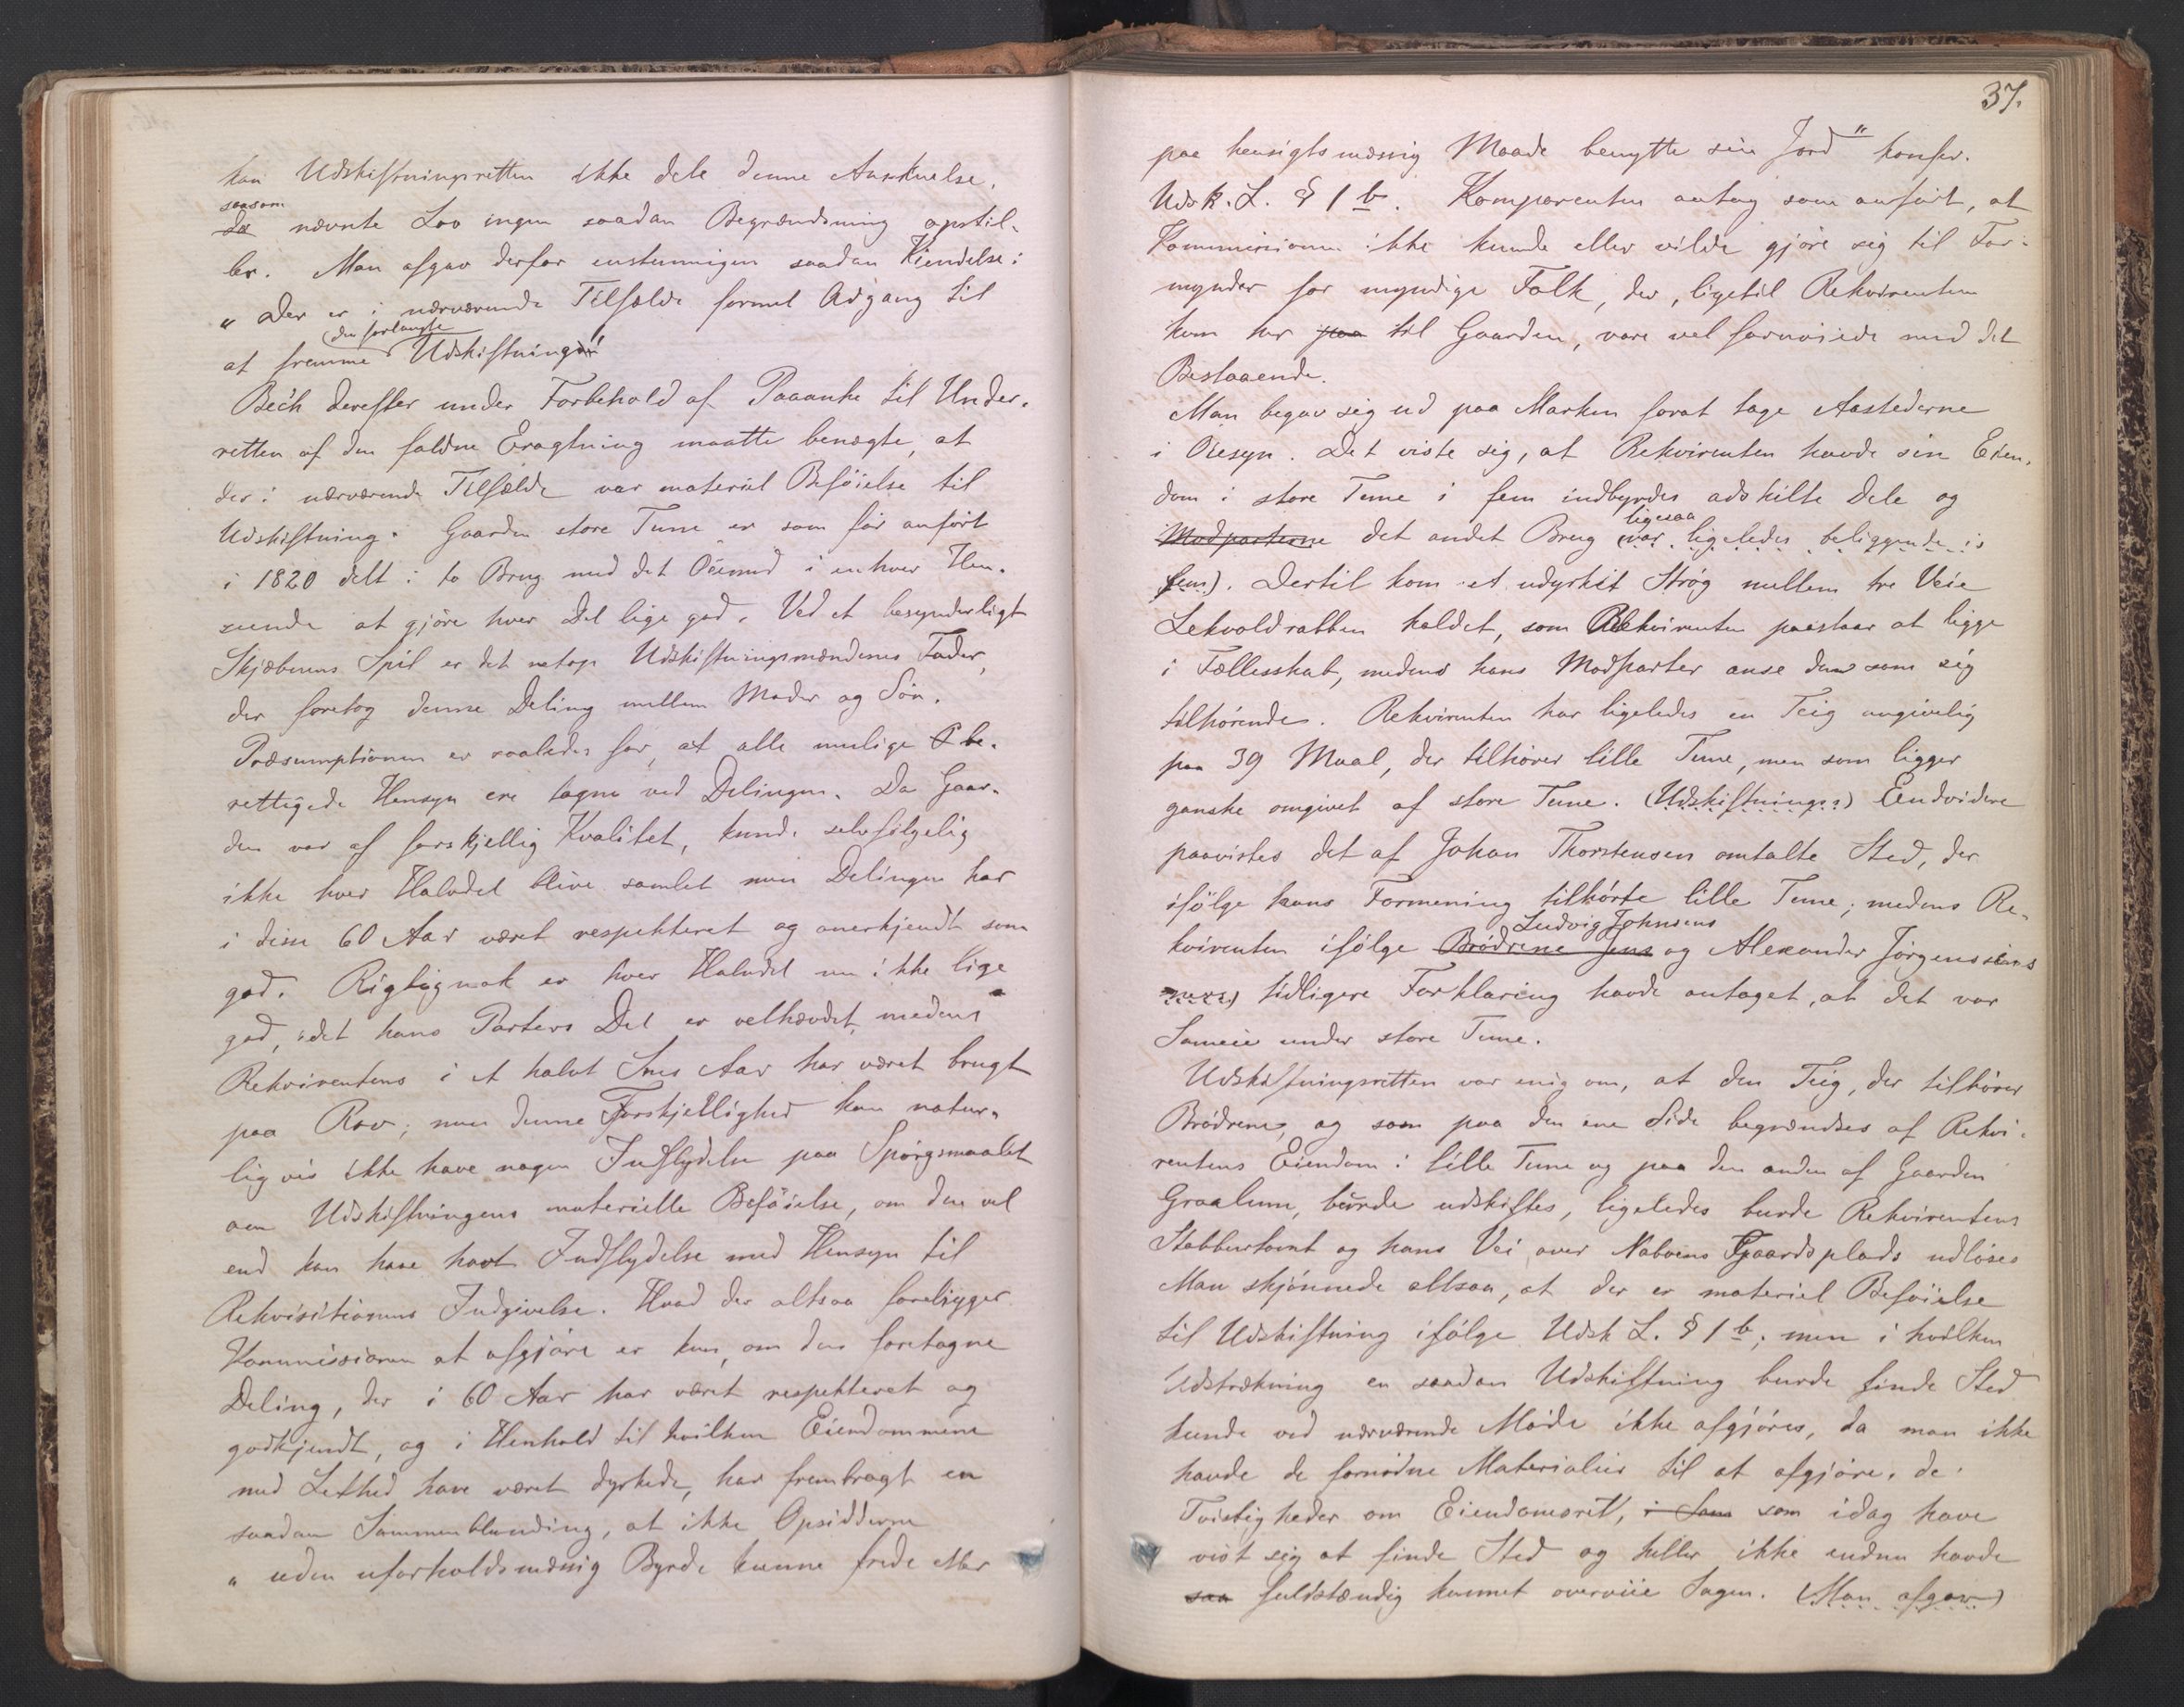 kan Udskiftningsretten ikke dele denne Anskuelse,
saasom
da nævnte Lov ingen saadan Begrændsning opstil-
ler. Man afgav derfor enstemmigen saadan Kjendelse:
"Der er i nærværende Tilfælde formel Adgang til
(den forlangte
at fremme Udskiftning"
Bech derefter under Forbehold af Paaanke til Under-
retten af den faldne Eragtning maatte benægte, at
der i nærværende Tilfælde var materiel Beføielse til
Udskiftning. Gaarden store Tune er som før anført
i 1820 delt i to Brug med det Øiemed i enhver Hen-
seende at gjøre hver Del lige god. Ved et besynderligt
Skjæbnens Spil er det netop Udskiftningsmændenes Fader,
der foretog denne Deling mellem Moder og Søn.
Præsumptionen er saaledes for, at alle mulige be-
rettigede Hensyn ere tagne ved Delingen. Da Gaar-
den var af forskjellig Kvalitet, kunde selvfølgelig
ikke hver Halvdel blive samlet men Delingen har
i disse 60 Aar været respekteret og anerkjendt som
god. Rigtignok er hver Halvdel nu ikke lige
god, idet hans Parters Del er velhævdet, medens
Rekvirentens i et halvt Snes Aar har været brugt
paa Rov; men denne Forskjellighed kan natur-
ligvis ikke have nogen Indflydelse paa Spørgsmaalet
om Udskiftningens materielle Beføielse, om den vel
end kan have havt Indflydelse med Hensyn til
Rekvisitionens Indgivelse. Hvad der altsaa foreligger
Kommissionen at afgjøre er kun, om den foretagne
Deling, der i 60 Aar har været respekteret og
godkjendt, og i Henhold til hvilken Eiendommene
med Lethed have været dyrkede, har frembragt en
saadan Sammenblanding, at ikke Opsidderne
"uden uforholdsmæssig Byrde kunne frede eller
37.
paa hensigtsmæssig Maade benytte sin Jord" konfer.
Udsk. L. § 1 b. Komparenten antog som anført, at
Kommissionen ikke kunde eller vilde gjøre sig til For-
mynder for myndige Folk, der, ligetil Rekvirenten
kom her paa til Gaarden, vare vel fornøiede med det
Bestaaende.
Man begav sig ud paa Marken forat tage Aastederne
i Øiesyn. Det viste sig, at Rekvirenten havde sin Eien-
dom i store Tune i fem indbyrdes adskilte Dele og
ligesaa
Modparterne det andet Brug (var ligeledes beliggende i
fem). Dertil kom et udyrket Strøg mellem tre Veie
Lekvoldrabben kaldet, som Rekvirenten paastaar at ligge
i Fællesskab, medens hans Modparter anse den som sig
tilhørende. Rekvirenten har ligeledes en Teig angivelig
paa 39 Maal, der tilhører lille Tune, men som ligger
ganske omgivet af store Tune. (Udskiftnings:) Endvidere
paavistes det af Johan Thorstensen omtalte Sted, der
ifølge hans Formening tilhørte lille Tune; medens Re-
Ludvig Johnsens
kvirenten ifølge Brødrene Jens og Alexander Jørgensens
tidligere Forklaring havde antaget, at det var
Sameie under store Tune.
Udskiftningsretten var enig om, at den Teig, der tilhører
Brødrene, og som paa den ene Side begrændses af Rekvi-
rentens Eiendom i lille Tune og paa den anden af Gaarden
Graalum, burde udskiftes, ligeledes burde Rekvirentens
Stabburtomt og hans Vei over Naboens Gaardsplads udløses
Man skjønnede altsaa, at der er materiel Beføielse
til Udskiftning ifølge Udsk L. § 1 b; men i hvilken
Udstrækning en saadan Udskiftning burde finde Sted
kunde ved nærværende Møde ikke afgjøres, da man ikke
havde de fornødne Materialier til at afgjøre. de
Tvistigheder om Eiendomsret, i Sam som idag have
vist sig at finde Sted og heller ikke endnu havde
saa fuldstændig kunnet overveie Sagen. (Man afgav)